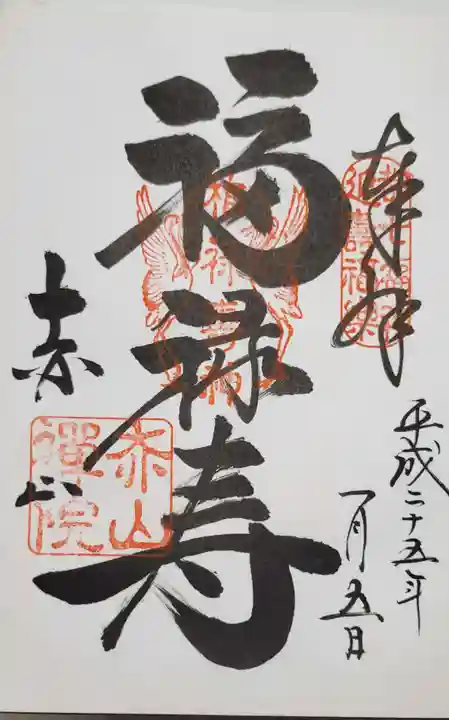 奉拝
平成二十五年
一月五日
福禄寿
福禄寿
赤山
赤山
禅院